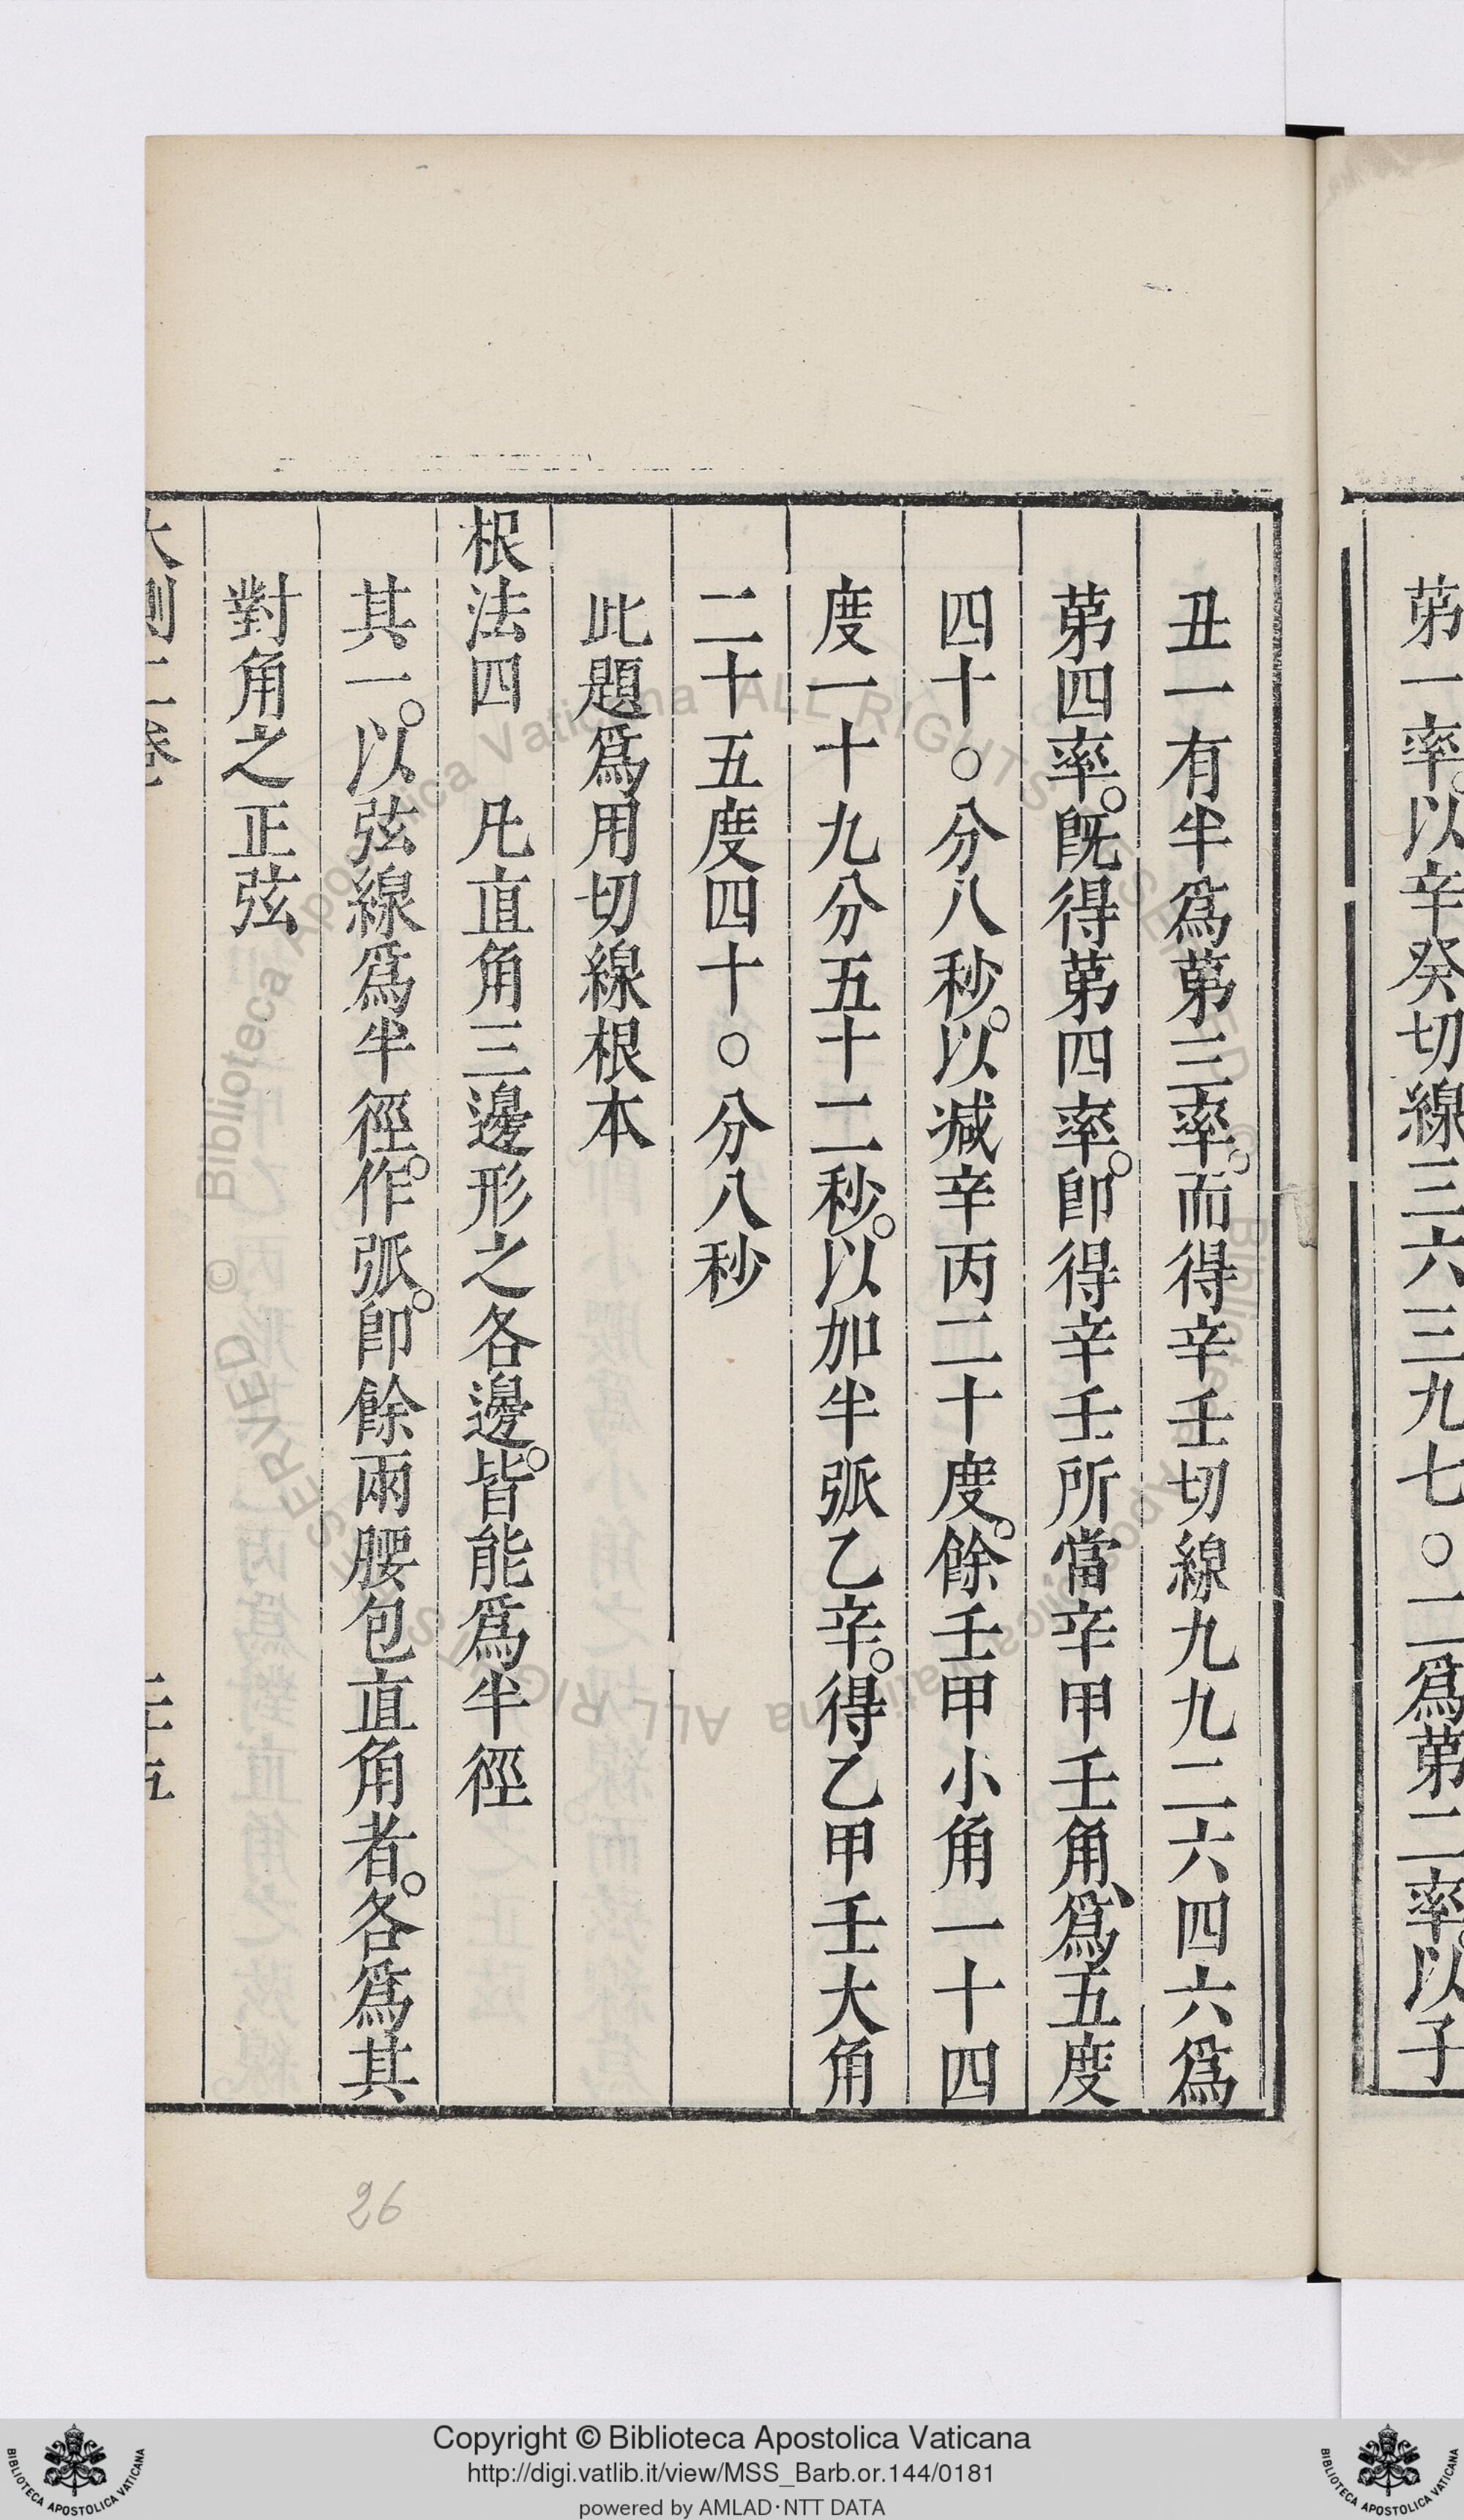 第一率。以辛癸切線三六三九七〇二爲第二率。以子
丑一有半爲第三率。而得辛壬切線九九二六四六爲
第四率。旣得第四率。卽得辛壬所當辛甲壬角、爲五度
四十〇分八秒。以减辛丙二十度。餘壬甲小角一十四
度一十九分五十二秒。以加半弧乙辛。得乙甲壬大角
二十五度四十〇分八秒
此題爲用切線根本
根法四　凡直角三邊形之各邊。皆能爲半徑
其一。以弦線爲半徑。作弧。卽餘兩腰包直角者。各爲其
對角之正弦
大測二卷
二十五
26
© Biblioteca Apostolica Vaticana ALL RIGHTS RESERVED
© Biblioteca Apostolica Vaticana ALL RIGHTS RESERVED
Copyright © Biblioteca Apostolica Vaticana
http://digi.vatlib.it/view/MSS_Barb.or.144/0181
powered by AMLAD·NTT DATA
BIBLIOTECA APOSTOLICA VATICANA
BIBLIOTECA APOSTOLICA VATICANA